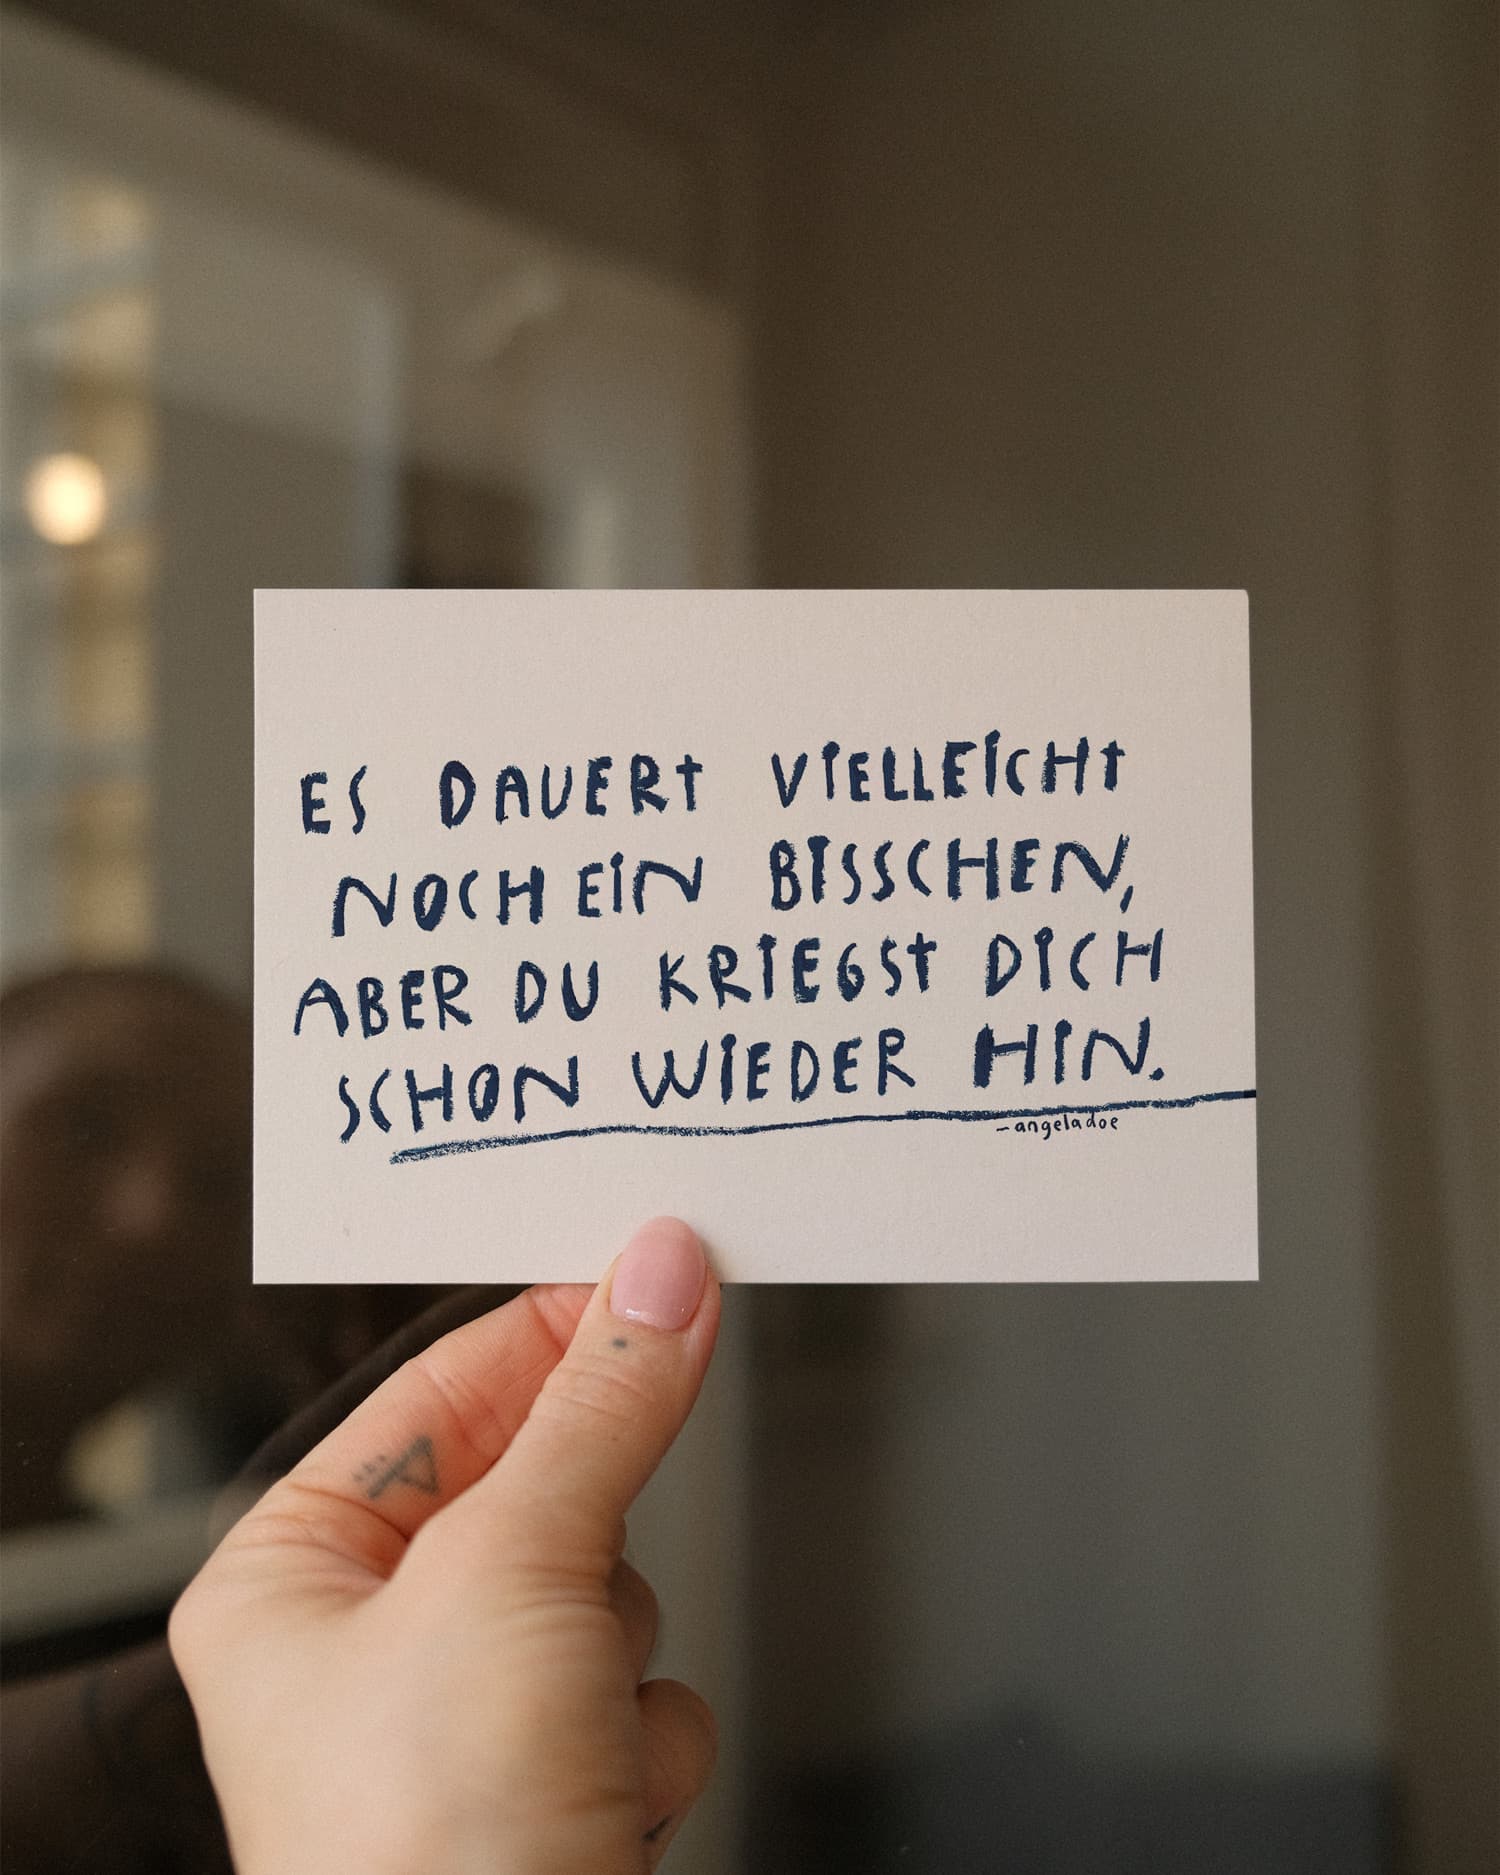 ES DAUERT VIELLEICHT
NOCH EIN BISSCHEN,
ABER DU KRIEGST DICH
SCHON WIEDER HIN.
- angeladoe